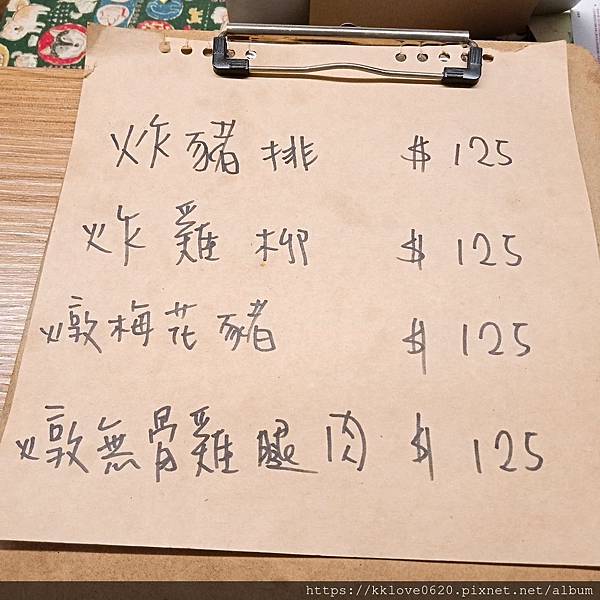 炸豬排 $125
炸雞柳 $125
燉梅花豬 $125
燉無骨雞腿肉 $125
https://kklove0620.pixnet.net/album